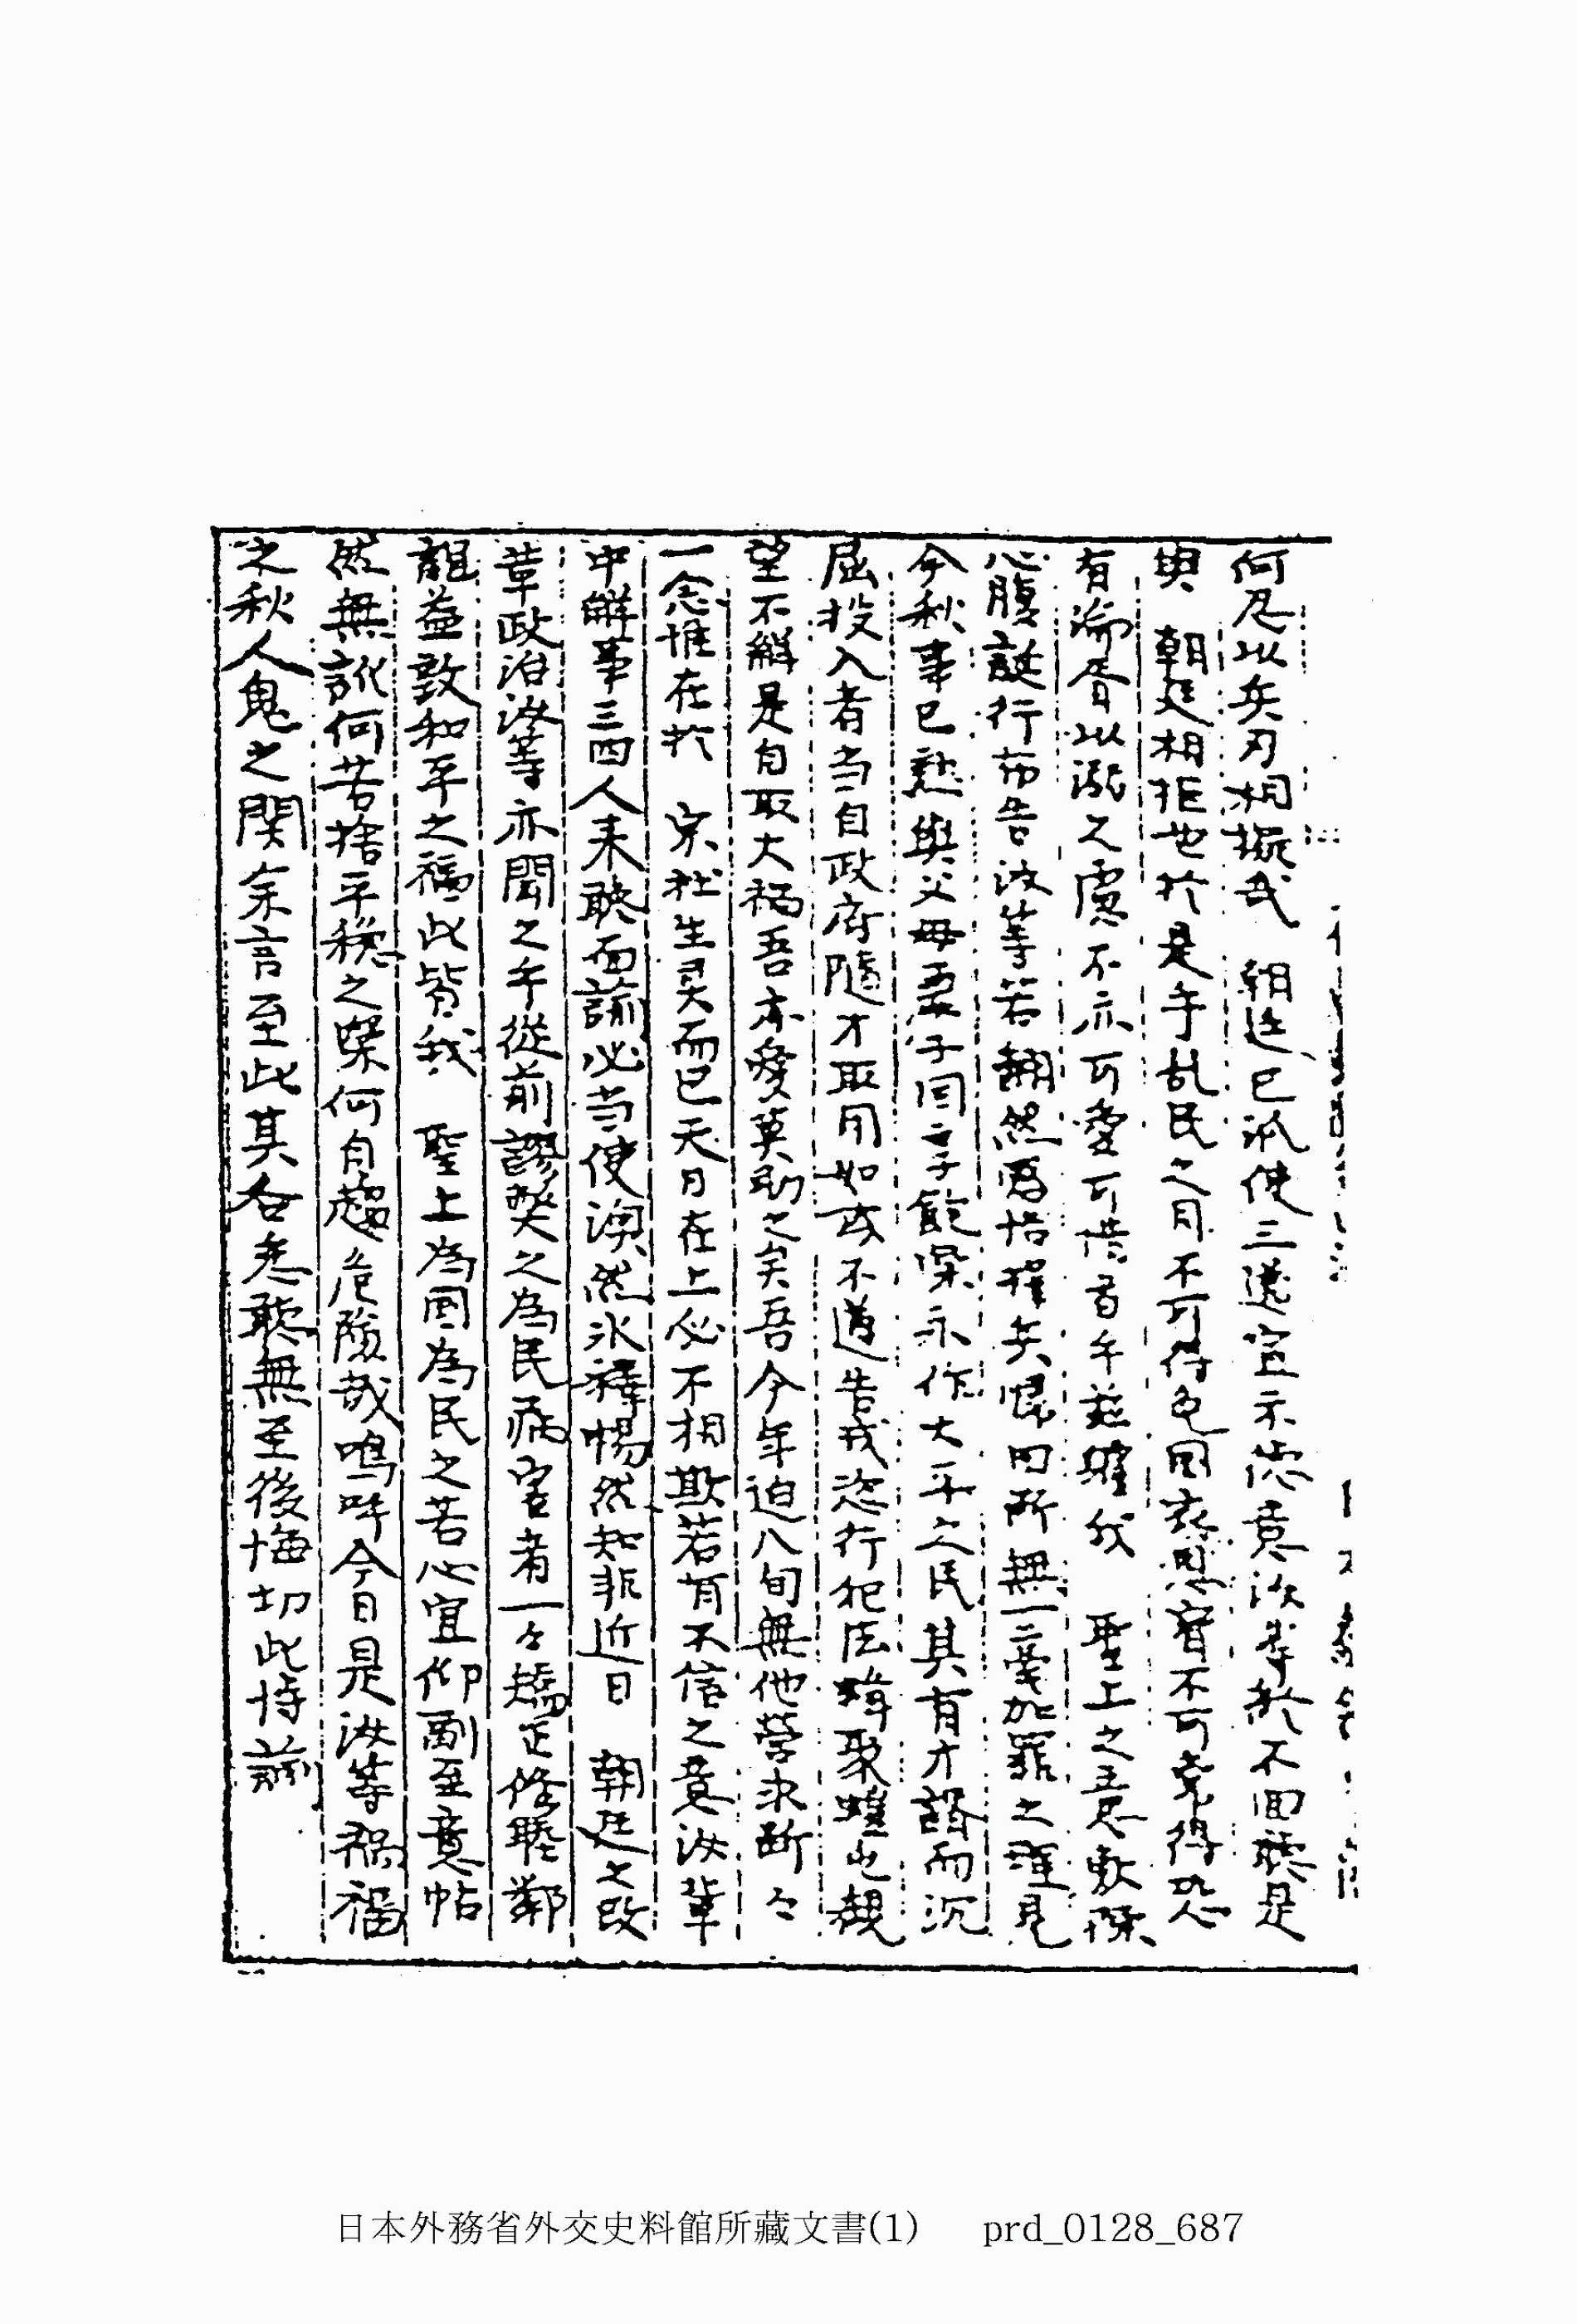 何忍以兵刃相擬哉 朝廷已派使三邊宣示德意汝等執不回聽是
與 朝廷相拒也於是乎乱民之目不可得免因哀思實不可堯得恐
有淪胥以溺之慮不亦可憂可惜者乎茲確我 聖上之至意敷陳
心腹誕行布告汝等若翻然覺悟釋兵恨田所無一毫加罪之理見
今秋事已熟與父母妻子同享飽樂永作大平之民其有才諝而沉
屈投入者当自政府隨才取用如或不遵告戒恣行犯法蜂聚蝗屯覬
望不解是自取大禍吾亦愛莫助之矣吾今年迫八旬無他營求斷々
一念惟在於 宗社生灵而已天日在上必不相欺若有不信之意汝輩
中觧事三四人来聽面諭必当使渙然氷釋惕然知非近日 朝廷之改
革政治汝等亦聞之乎從前謬獘之為民病害者一々矯正修聯鄰
誼益敦和平之福此皆我 聖上為国為民之苦心宜仰副至意帖
然無訛何苦捨平穏之樂何自趨危險哉嗚呼今日是汝等禍福
之秋人鬼之関余言至此其各悉聽無至後悔切此特諭
日本外務省外交史料館所藏文書(1) prd_0128_687